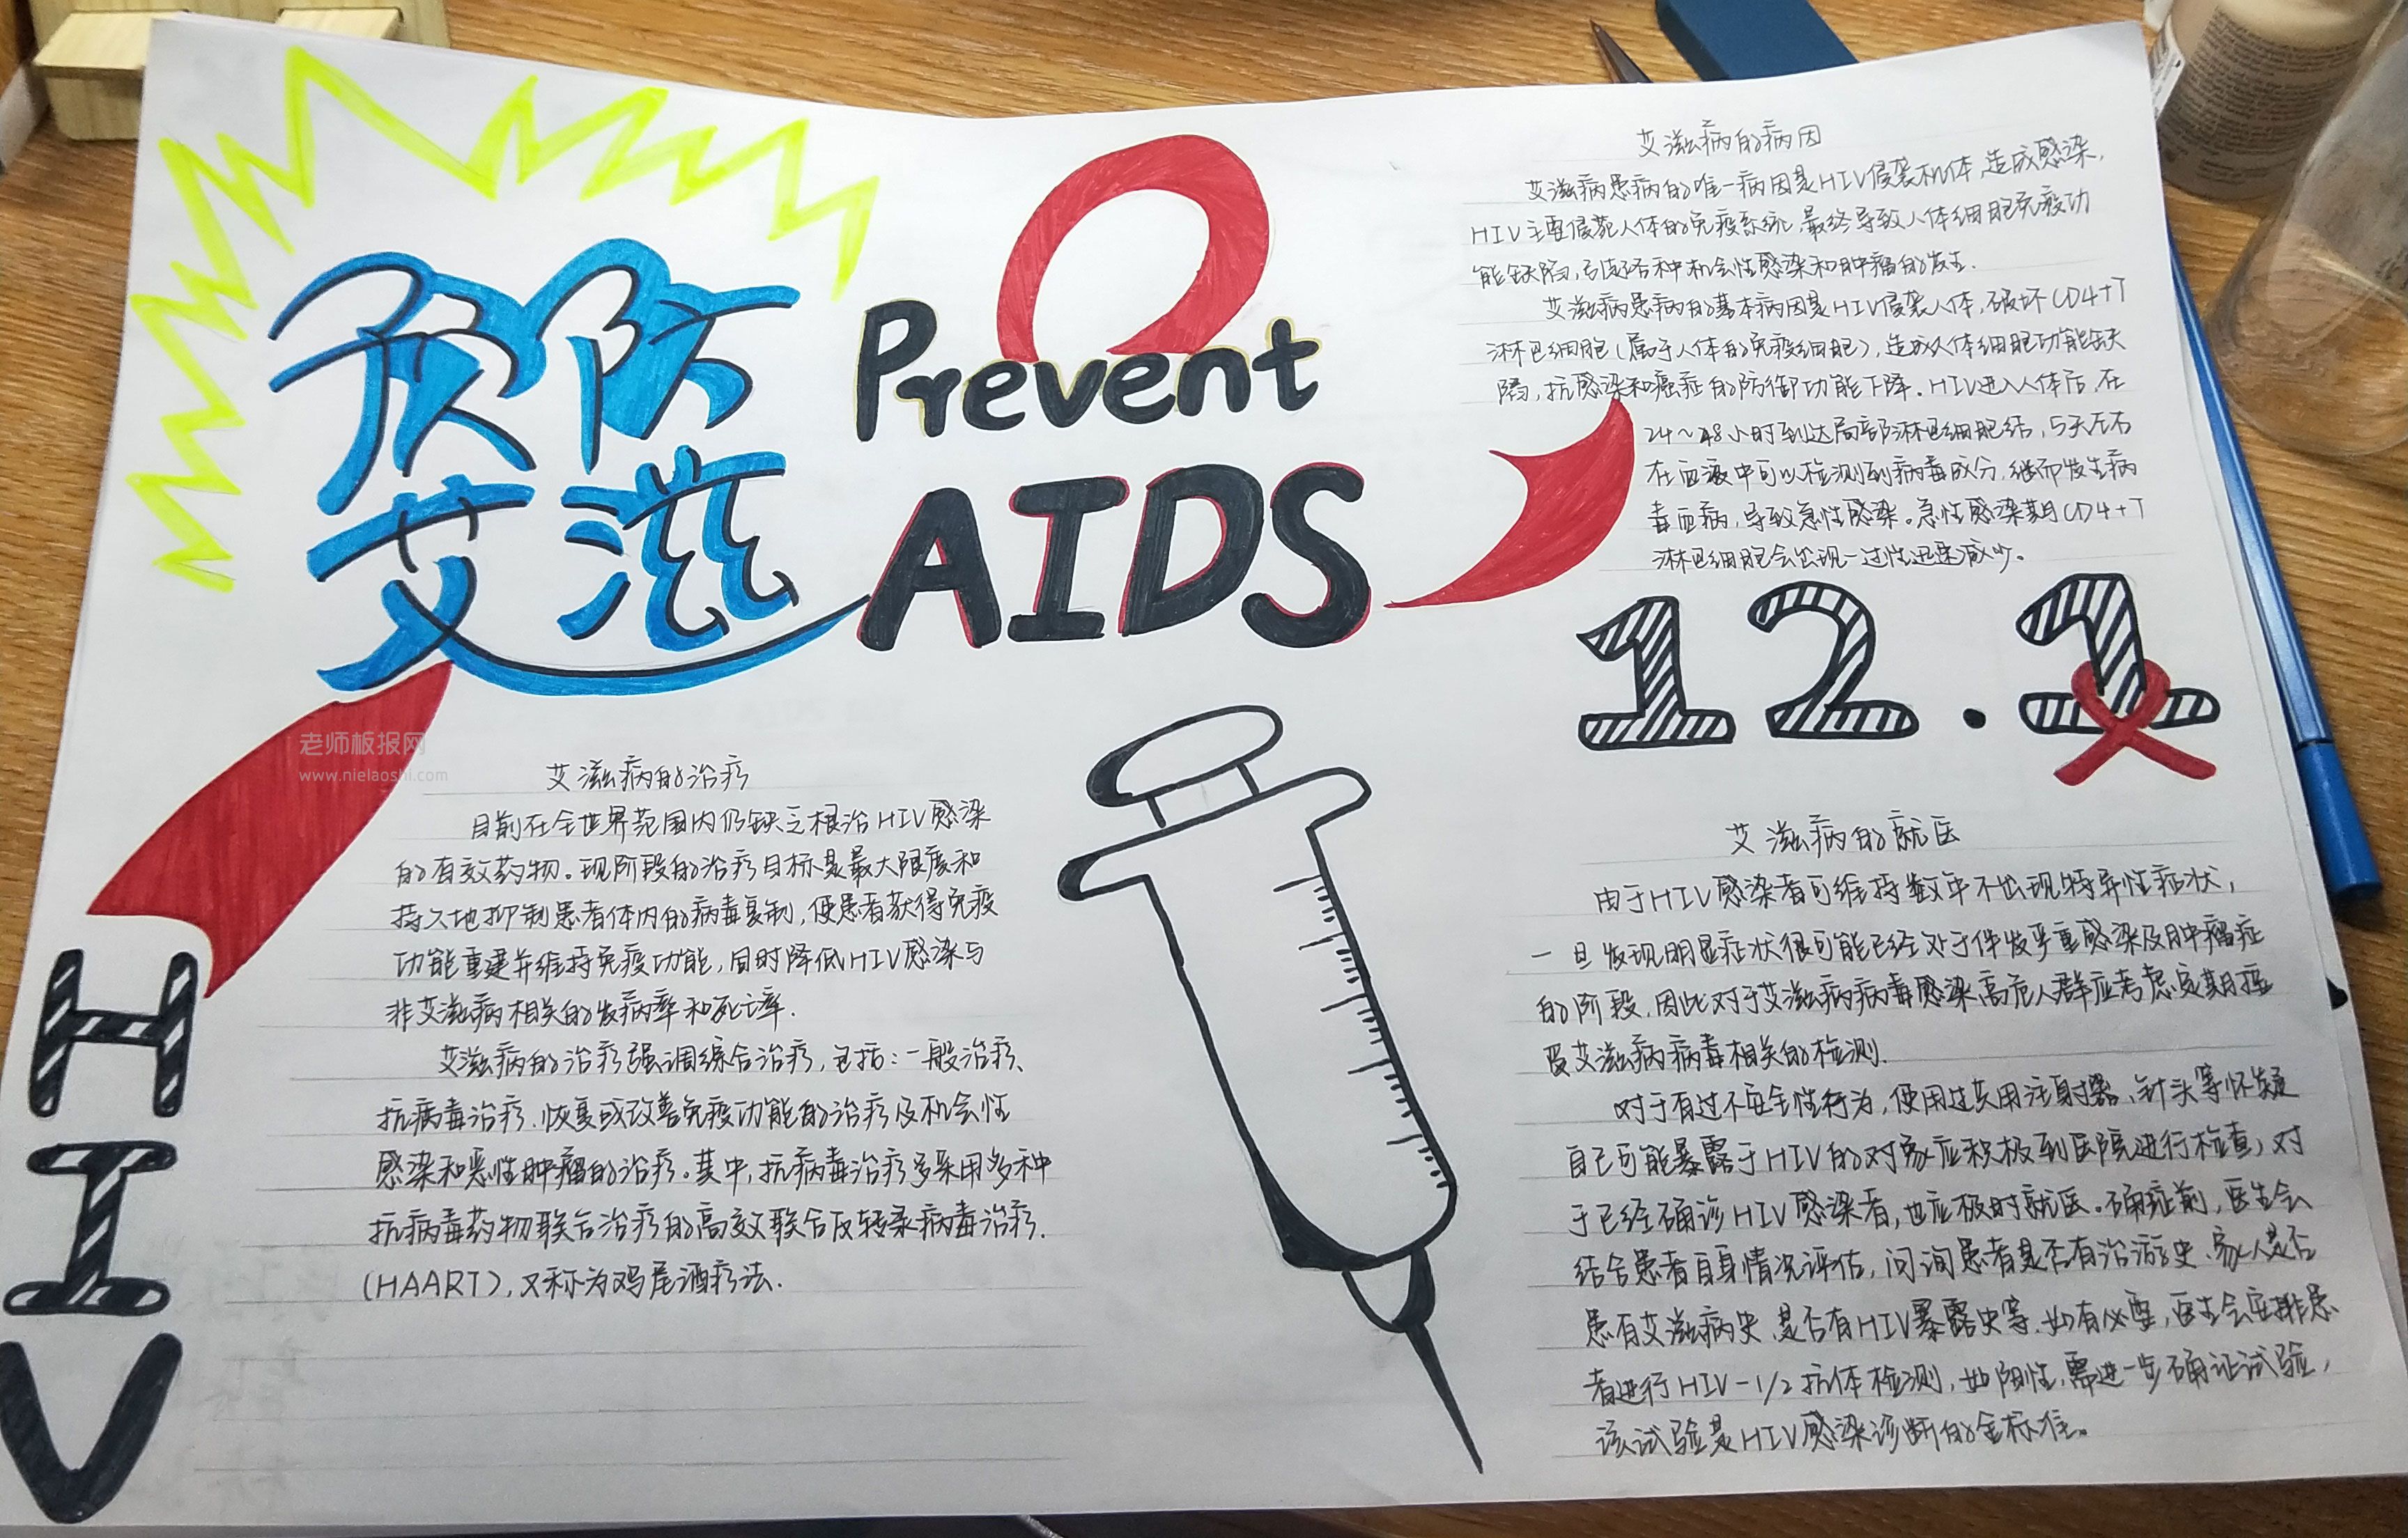 预防
艾滋
Prevent
AIDS
艾滋病的病因
艾滋病患病的唯一病因是HIV侵袭机体,造成感染,
HIV主要侵犯人体的免疫系统,最终导致人体细胞免疫功
能缺陷,引起各种机会性感染和肿瘤的发生.
艾滋病患病的基本病因是HIV侵袭人体,破坏CD4+T
淋巴细胞(属于人体的免疫细胞),造成人体细胞功能缺
陷,抗感染和癌症的防御功能下降.HIV进入人体后,在
24~48小时到达局部淋巴细胞结,5天左右
在血液中可以检测到病毒成分,继而发生病
毒血病,导致急性感染。急性感染期CD4+T
淋巴细胞会出现一过性迅速减少。
12.1
老师板报网
www.nielaoshi.com
艾滋病的治疗
目前在全世界范围内仍缺乏根治HIV感染
的有效药物。现阶段的治疗目标是最大限度和
持久地抑制患者体内的病毒复制,使患者获得免疫
功能重建并维持免疫功能,同时降低HIV感染与
非艾滋病相关的发病率和死亡率.
艾滋病的治疗强调综合治疗,包括:一般治疗、
抗病毒治疗.恢复或改善免疫功能的治疗及机会性
感染和恶性肿瘤的治疗。其中,抗病毒治疗多采用多种
抗病毒药物联合治疗的高效联合反转录病毒治疗.
(HAART),又称为鸡尾酒疗法.
HIV
艾滋病的就医
由于HIV感染者可维持数年不出现特异性症状,
一旦发现明显症状很可能已经处于伴发严重感染及肿瘤症
的阶段,因此对于艾滋病病毒感染高危人群应考虑定期接
受艾滋病病毒相关的检测.
对于有过不安全性行为,使用过共用注射器、针头等怀疑
自己可能暴露于HIV的对象应积极到医院进行检查,对
于已经确诊HIV感染者,也应极时就医。确症前,医生会
结合患者自身情况评估,问询患者是否有冶游史、家人是否
患有艾滋病史、是否有HIV暴露史等.如有必要,医生会安排患
者进行HIV-1/2抗体检测,如阳性,需进一步确证试验,
该试验是HIV感染诊断的金标准。